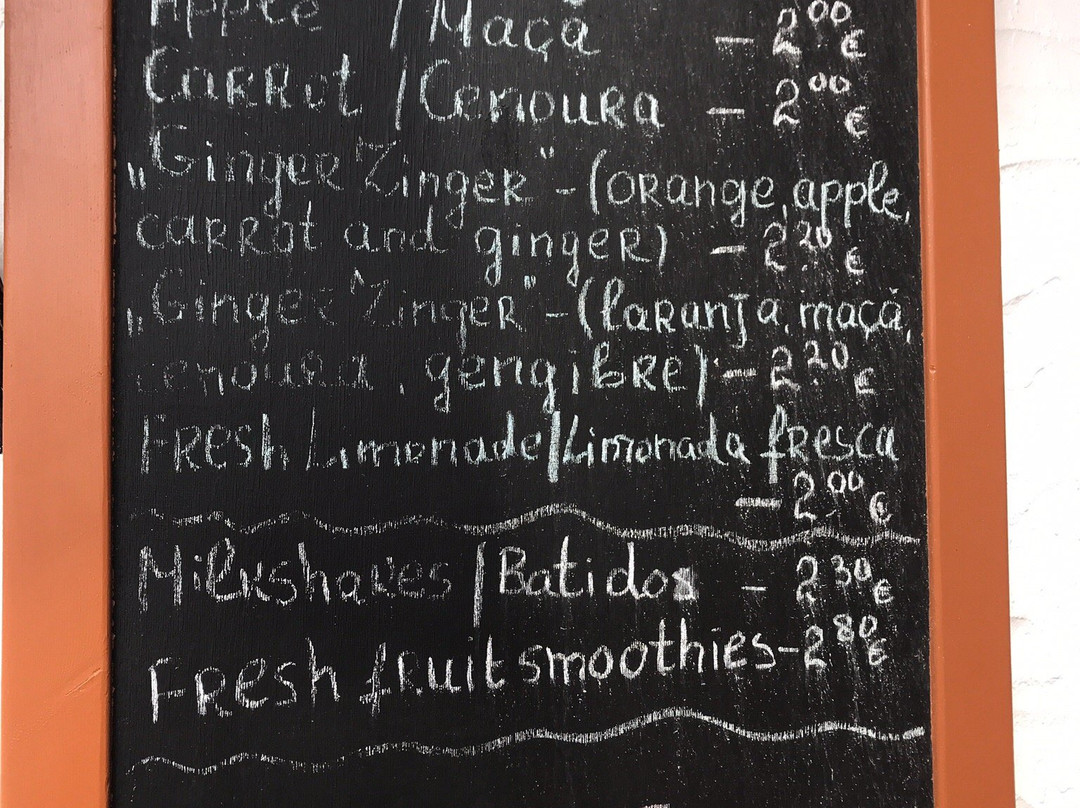 Apple / Maçã - 2.00 €
Carrot / Cenoura - 2.00 €
„Ginger Zinger" - (orange, apple,
carrot and ginger) - 2.20 €
„Ginger Zinger" - (laranja, maçã,
cenoura, gengibre) - 2.20 €
Fresh Limonade/Limonada fresca
- 2.00 €
Milkshakes / Batidos - 2.30 €
Fresh fruit smoothies - 2.80 €